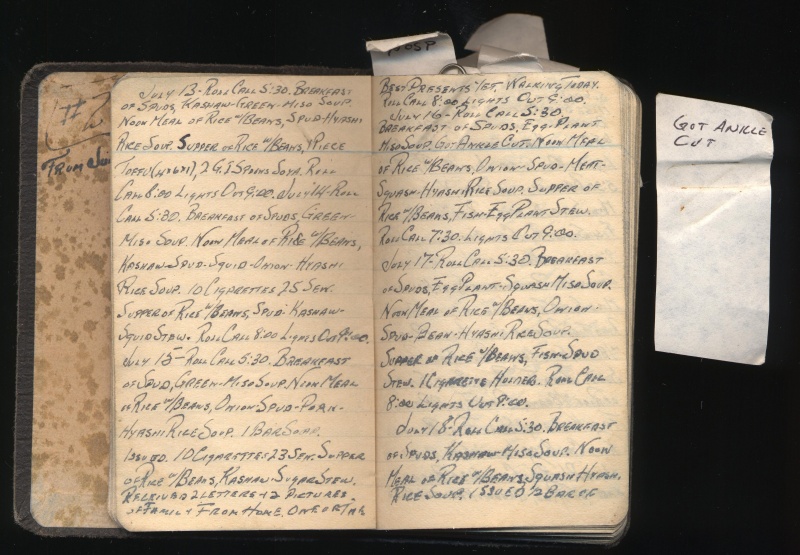 HOSP
#2
FROM JU
JULY 13-ROLL CALL 5:30. BREAKFAST
OF SPUDS, KASHAW-GREEN-MISO SOUP.
NOON MEAL OF RICE W/BEANS, SPUD-HYASHI
RICE SOUP. SUPPER OF RICE W/BEANS, 1 PIECE
TOFFU, 2 G.I SPOONS SOYA. ROLL
CALL 8:00 LIGHTS OUT 9:00. JULY 14-ROLL
CALL 5:30. BREAKFAST OF SPUDS, GREEN-
MISO SOUP. NOON MEAL OF RICE W/BEANS,
KASHAW-SPUD-SQUID-ONION-HYASHI
RICE SOUP. 10 CIGARETTES 25 SEN.
SUPPER OF RICE W/BEANS, SPUD-KASHAW-
SQUID STEW. ROLL CALL 8:00 LIGHTS OUT 9:00.
JULY 15-ROLL CALL 5:30. BREAKFAST
OF SPUD, GREEN-MISO SOUP. NOON MEAL
OF RICE W/BEANS, ONION-SPUD-PORK-
HYASHI RICE SOUP. 1 BAR SOAP.
ISSUED. 10 CIGARETTES 23 SEN. SUPPER
OF RICE W/BEANS, KASHAW-SUGAR STEW.
RECEIVED 2 LETTERS + 2 PICTURES
OF FAMILY FROM HOME. ONE OF THE
BEST PRESENTS YET. WALKING TODAY.
ROLL CALL 8:00 LIGHTS OUT 9:00.
JULY 16-ROLL CALL 5:30
BREAKFAST OF SPUDS, EGG-PLANT
MISO SOUP. GOT ANKLE CUT. NOON MEAL
OF RICE W/BEANS, ONION-SPUD-MEAT-
SQUASH-HYASHI RICE SOUP. SUPPER OF
RICE W/BEANS, FISH-EGG PLANT STEW.
ROLL CALL 7:30. LIGHTS OUT 9:00.
JULY 17-ROLL CALL 5:30. BREAKFAST
OF SPUDS, EGG PLANT-SQUASH MISO SOUP.
NOON MEAL OF RICE W/BEANS, ONION-
SPUD-BEAN-HYASHI RICE SOUP.
SUPPER OF RICE W/BEANS, FISH-SPUD
STEW. 1 CIGARETTE HOLDER. ROLL CALL
8:00 LIGHTS OUT 9:00.
JULY 18-ROLL CALL 5:30. BREAKFAST
OF SPUDS, KASHAW-MISO SOUP. NOON
MEAL OF RICE W/BEANS, SQUASH HYASHI-
RICE SOUP. ISSUED 1/2 BAR OF
GOT ANKLE
CUT